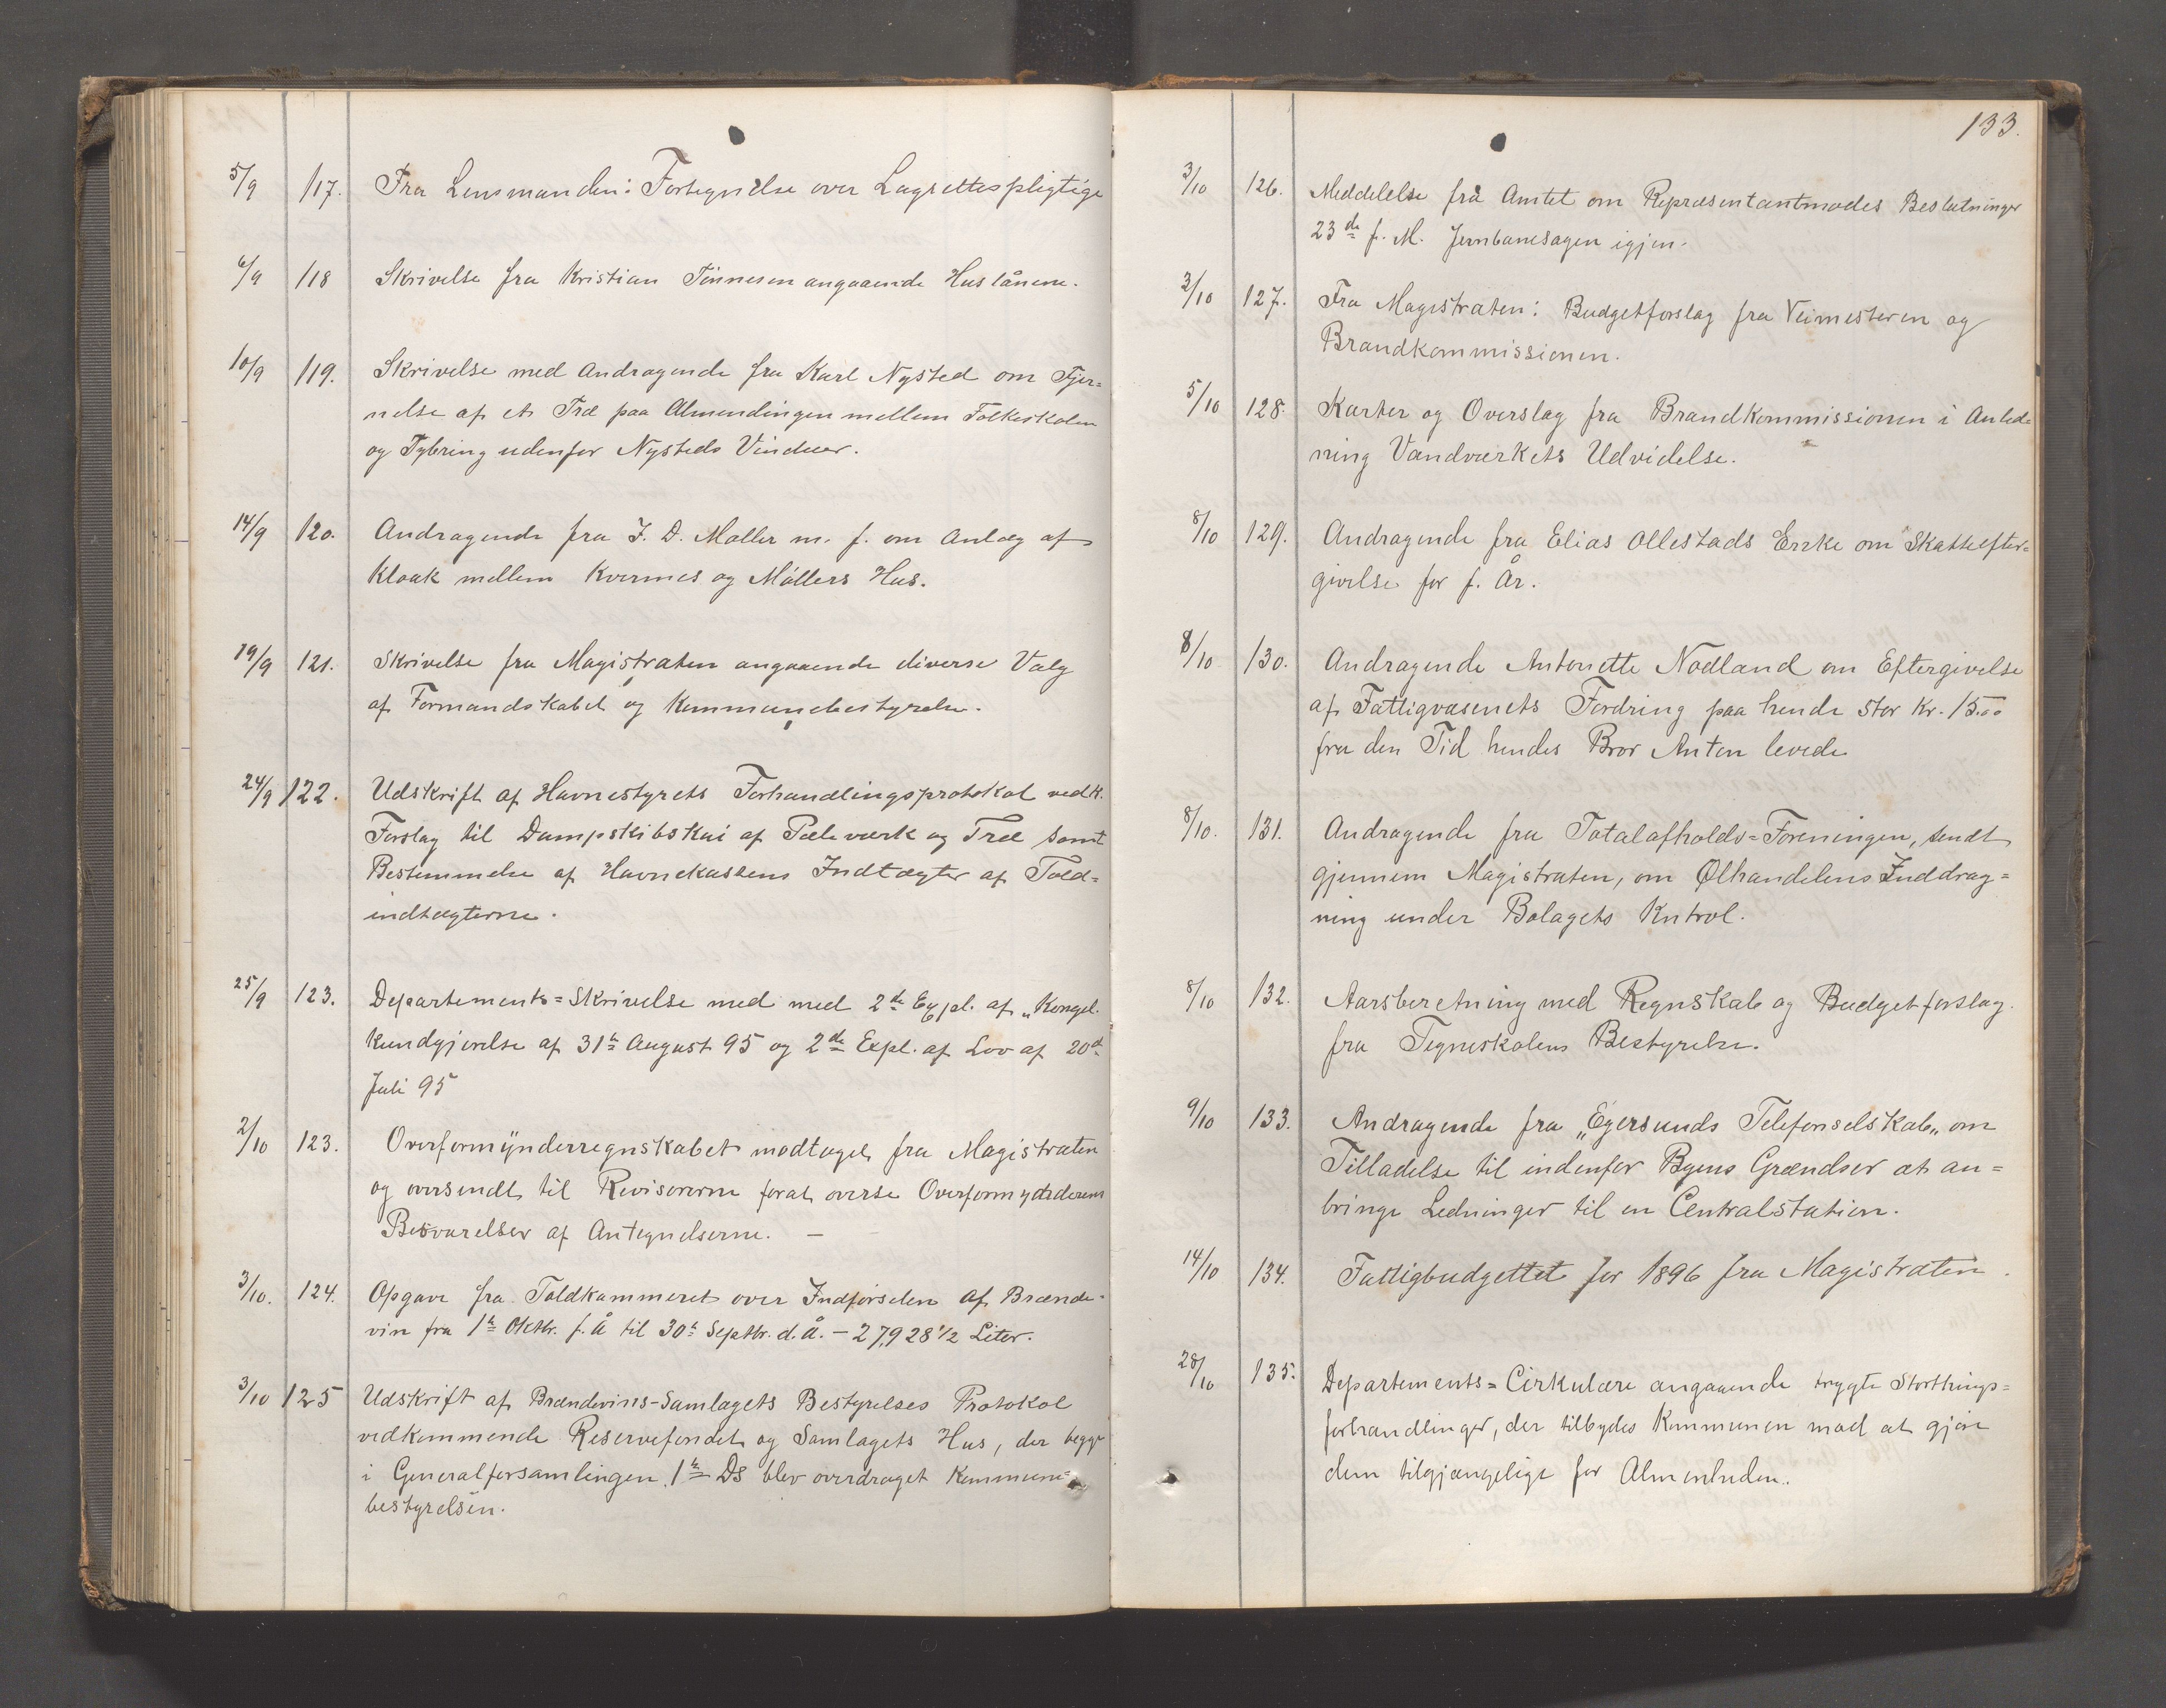 5/9 117. Fra Lensmanden: Fortegnelse over Lagrettespligtige
6/9 118 Skrivelse fra Kristian Tönnesen angaaende Huslånene.
10/9 119. Skrivelse med Andragende fra Karl Nysted om Fjer=
nelse af et Træ paa Almendingen mellem Folkeskolen
og Tybring udenfor Nysteds Vinduer.
14/9 120. Andragende fra J. D. Møller m. f. om Anlæg af
Kloak mellem Kvernes og Møllers Hus.
19/9 121. Skrivelse fra Magistraten angaaende diverse Valg
af Formandskabet og Kommunebestyrelse.
24/9 122. Udskrift af Havnestyrets Forhandlingsprotokol vedk.
Forslag til Dampskibskai af Pæleværk og Træ samt
Bestemmelse af Havnekassens Indtægter af Told=
indtægterne.
25/9 123. Departements=Skrivelse med med 2de Expl. af „Kongel.
Kundgjørelse af 31te August 95 og 2de Expl. af Lov af 20de
Juli 95
2/10 123. Overformynderregnskabet modtaget fra Magistraten
og oversendt til Revisorerne forat overse Overformynderens
Besvarelser af Antegnelserne. –
3/10. 124. Opgave fra Toldkammeret over Indførselen af Brænde-
vin fra 1te Oktbr. f. Å til 30te Septbr. d. Å. – 27,928 1/2 Liter.
3/10 125 Udskrift af Brændevins-Samlagets Bestyrelses Protokol
vedkommende Reservefondet og Samlagets Hus, der begge
i Generalforsamlingen 1te Ds blev overdraget Kommune=
bestyrelsen.
133.
3/10 126. Meddelelse frå Amtet om Repræsentantmødes Beslutninger
23de f. M. Jernbanesagen igjen.
3/10 127. Fra Magistraten: Budgetforslag fra Veimesteren og
Brandkommissionen.
5/10 128. Karter og Overslag fra Brandkommissionen i Anled=
ning Vandværkets Udvidelse.
8/10 129. Andragende fra Elias Ollestads Enke om Skatteefter=
givelse for f. År.
8/10 130. Andragende Antonette Nodland om Eftergivelse
af Fattigvæsenets Fordring paa hende stor Kr. 15.00
fra den Tid hendes Bror Anton levede
8/10. 131. Andragende fra Totalafholds=Foreningen, sendt
gjennem Magistraten, om Ølhandelens Inddrag=
ning under Bolagets Kntrol.
8/10 132. Aarsberetning med Regnskab og Budgetforslag
fra Tegneskolens Bestyrelse.
9/10 133. Andragende fra „Egersunds Telefonselskab„ om
Tilladelse til indenfor Byens Grændser at an=
bringe Ledninger til en Centralstation.
14/10 134. Fattigbudgettet for 1896 fra Magistraten.
28/10 135. Departements=Cirkulære angaaende trygte Storthings=
forhandlinger, der tilbydes Kommunen mod at gjøre
dem tilgjængelige for Almenheden.